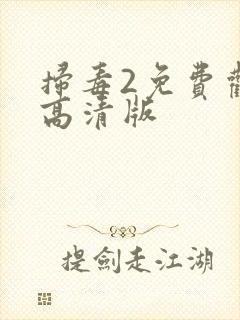 掃毒2免費
高清版
提劍走江湖